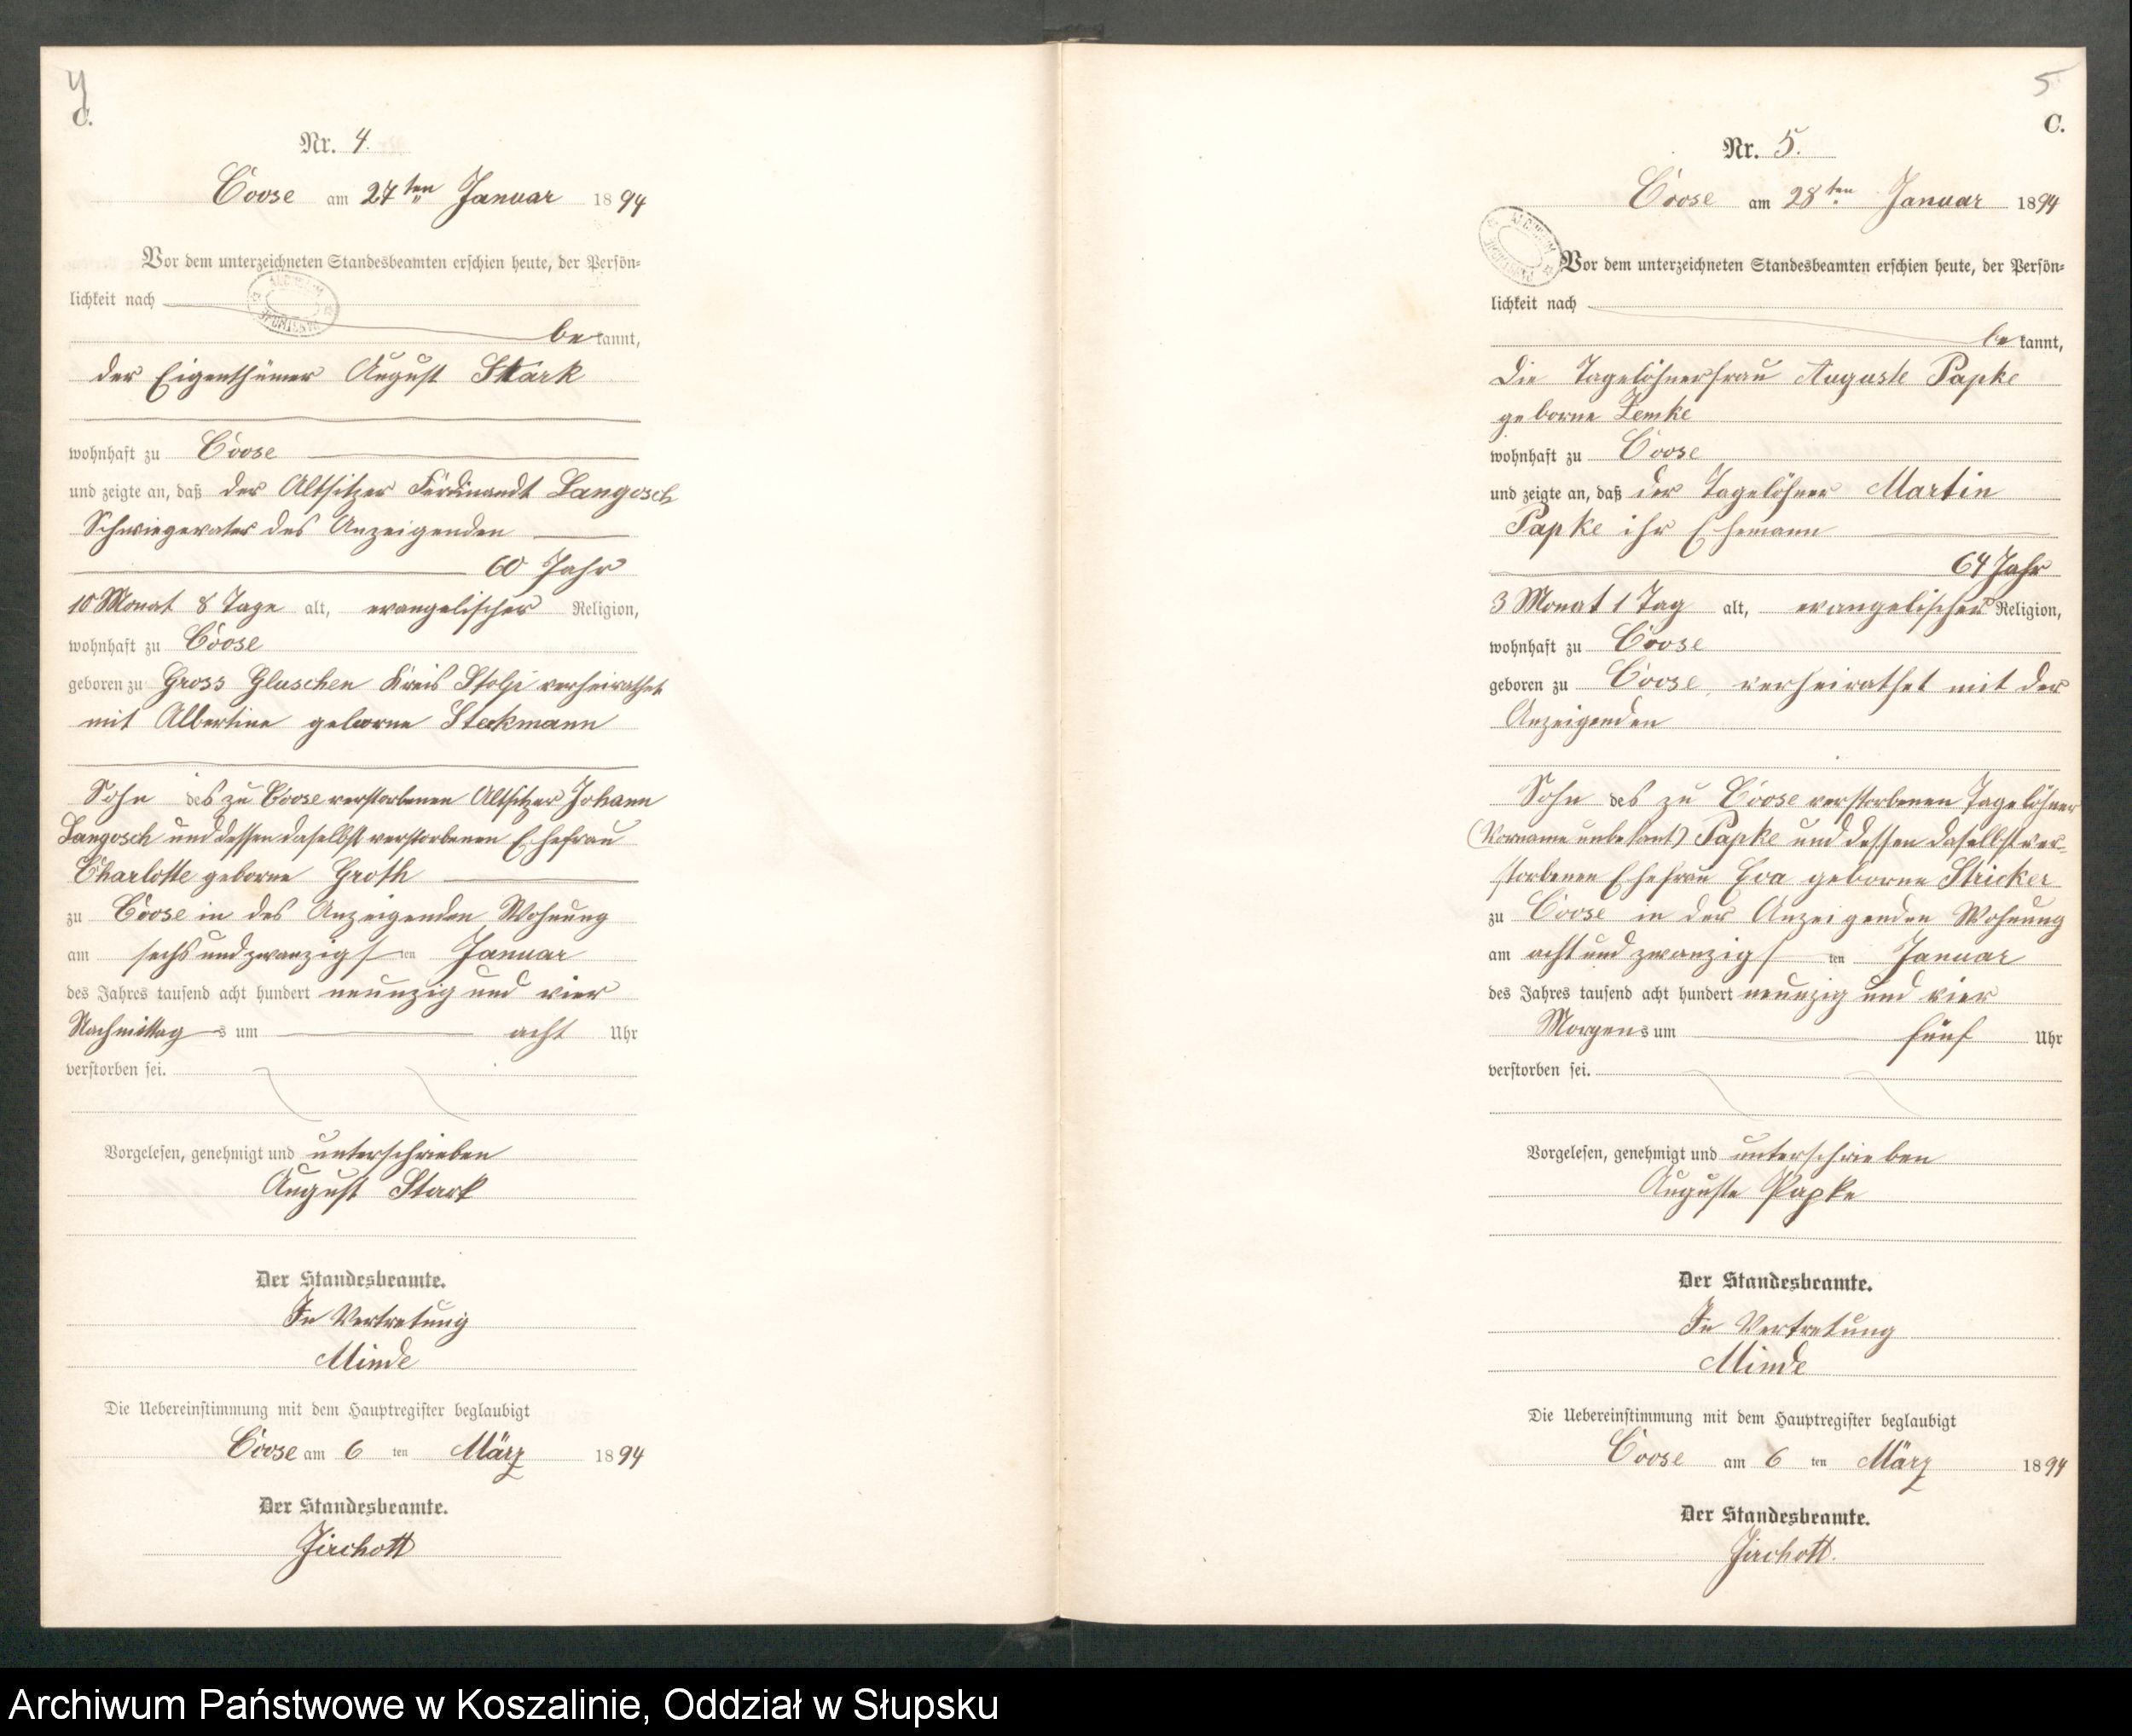 4
C.
Nr. 4.
Coose am 27ten Januar 1894
Vor dem unterzeichneten Standesbeamten erschien heute, der Persön-
lichkeit nach
bekannt,
der Eigenthümer August Stark
wohnhaft zu Coose
und zeigte an, daß der Altsitzer Ferdinandt Langosch
Schwiegervater des Anzeigenden
60 Jahr
10 Monat 8 Tage alt, evangelischer Religion,
wohnhaft zu Coose
geboren zu Gross Gluschen Kreis Stolp verheirathet
mit Albertine geborne Steckmann
Sohn des zu Coose verstorbenen Altsitzer Johann
Langosch und dessen daselbst verstorbenen Ehefrau
Charlotte geborne Groth
zu Coose in des Anzeigenden Wohnung
am sechsundzwanzigsten Januar
des Jahres tausend acht hundert neunzig und vier
Nachmittags um acht Uhr
verstorben sei.
Vorgelesen, genehmigt und unterschrieben
August Stark
Der Standesbeamte.
In Vertretung
Minde
Die Uebereinstimmung mit dem Hauptregister beglaubigt
Coose am 6ten März 1894
Der Standesbeamte.
Jirchott
5
C.
Nr. 5.
Coose am 28ten Januar 1894
Vor dem unterzeichneten Standesbeamten erschien heute, der Persön-
lichkeit nach
bekannt,
die Tagelöhnerfrau Auguste Papke
geborne Lemke
wohnhaft zu Coose
und zeigte an, daß der Tagelöhner Martin
Papke ihr Ehemann
64 Jahr
3 Monat 1 Tag alt, evangelischer Religion,
wohnhaft zu Coose
geboren zu Coose, verheirathet mit der
Anzeigenden
Sohn des zu Coose verstorbenen Tagelöhner
(Vorname unbekant) Papke und dessen daselbst ver-
storbenen Ehefrau Eva geborne Stricker
zu Coose in der Anzeigenden Wohnung
am acht und zwanzigsten Januar
des Jahres tausend acht hundert neunzig und vier
Morgens um fünf Uhr
verstorben sei.
Vorgelesen, genehmigt und unterschrieben
Auguste Papke
Der Standesbeamte.
In Vertretung
Minde
Die Uebereinstimmung mit dem Hauptregister beglaubigt
Coose am 6ten März 1894
Der Standesbeamte.
Jirchott.
Archiwum Państwowe w Koszalinie, Oddział w Słupsku